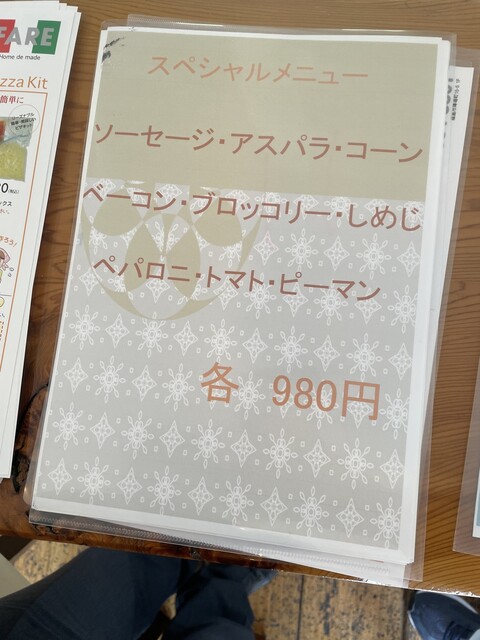 FARE
Home de made
zza Kit
簡単に
スペシャルメニュー
ソーセージ・アスパラ・コーン
ベーコン・ブロッコリー・しめじ
ペパロニ・トマト・ピーマン
各 980円